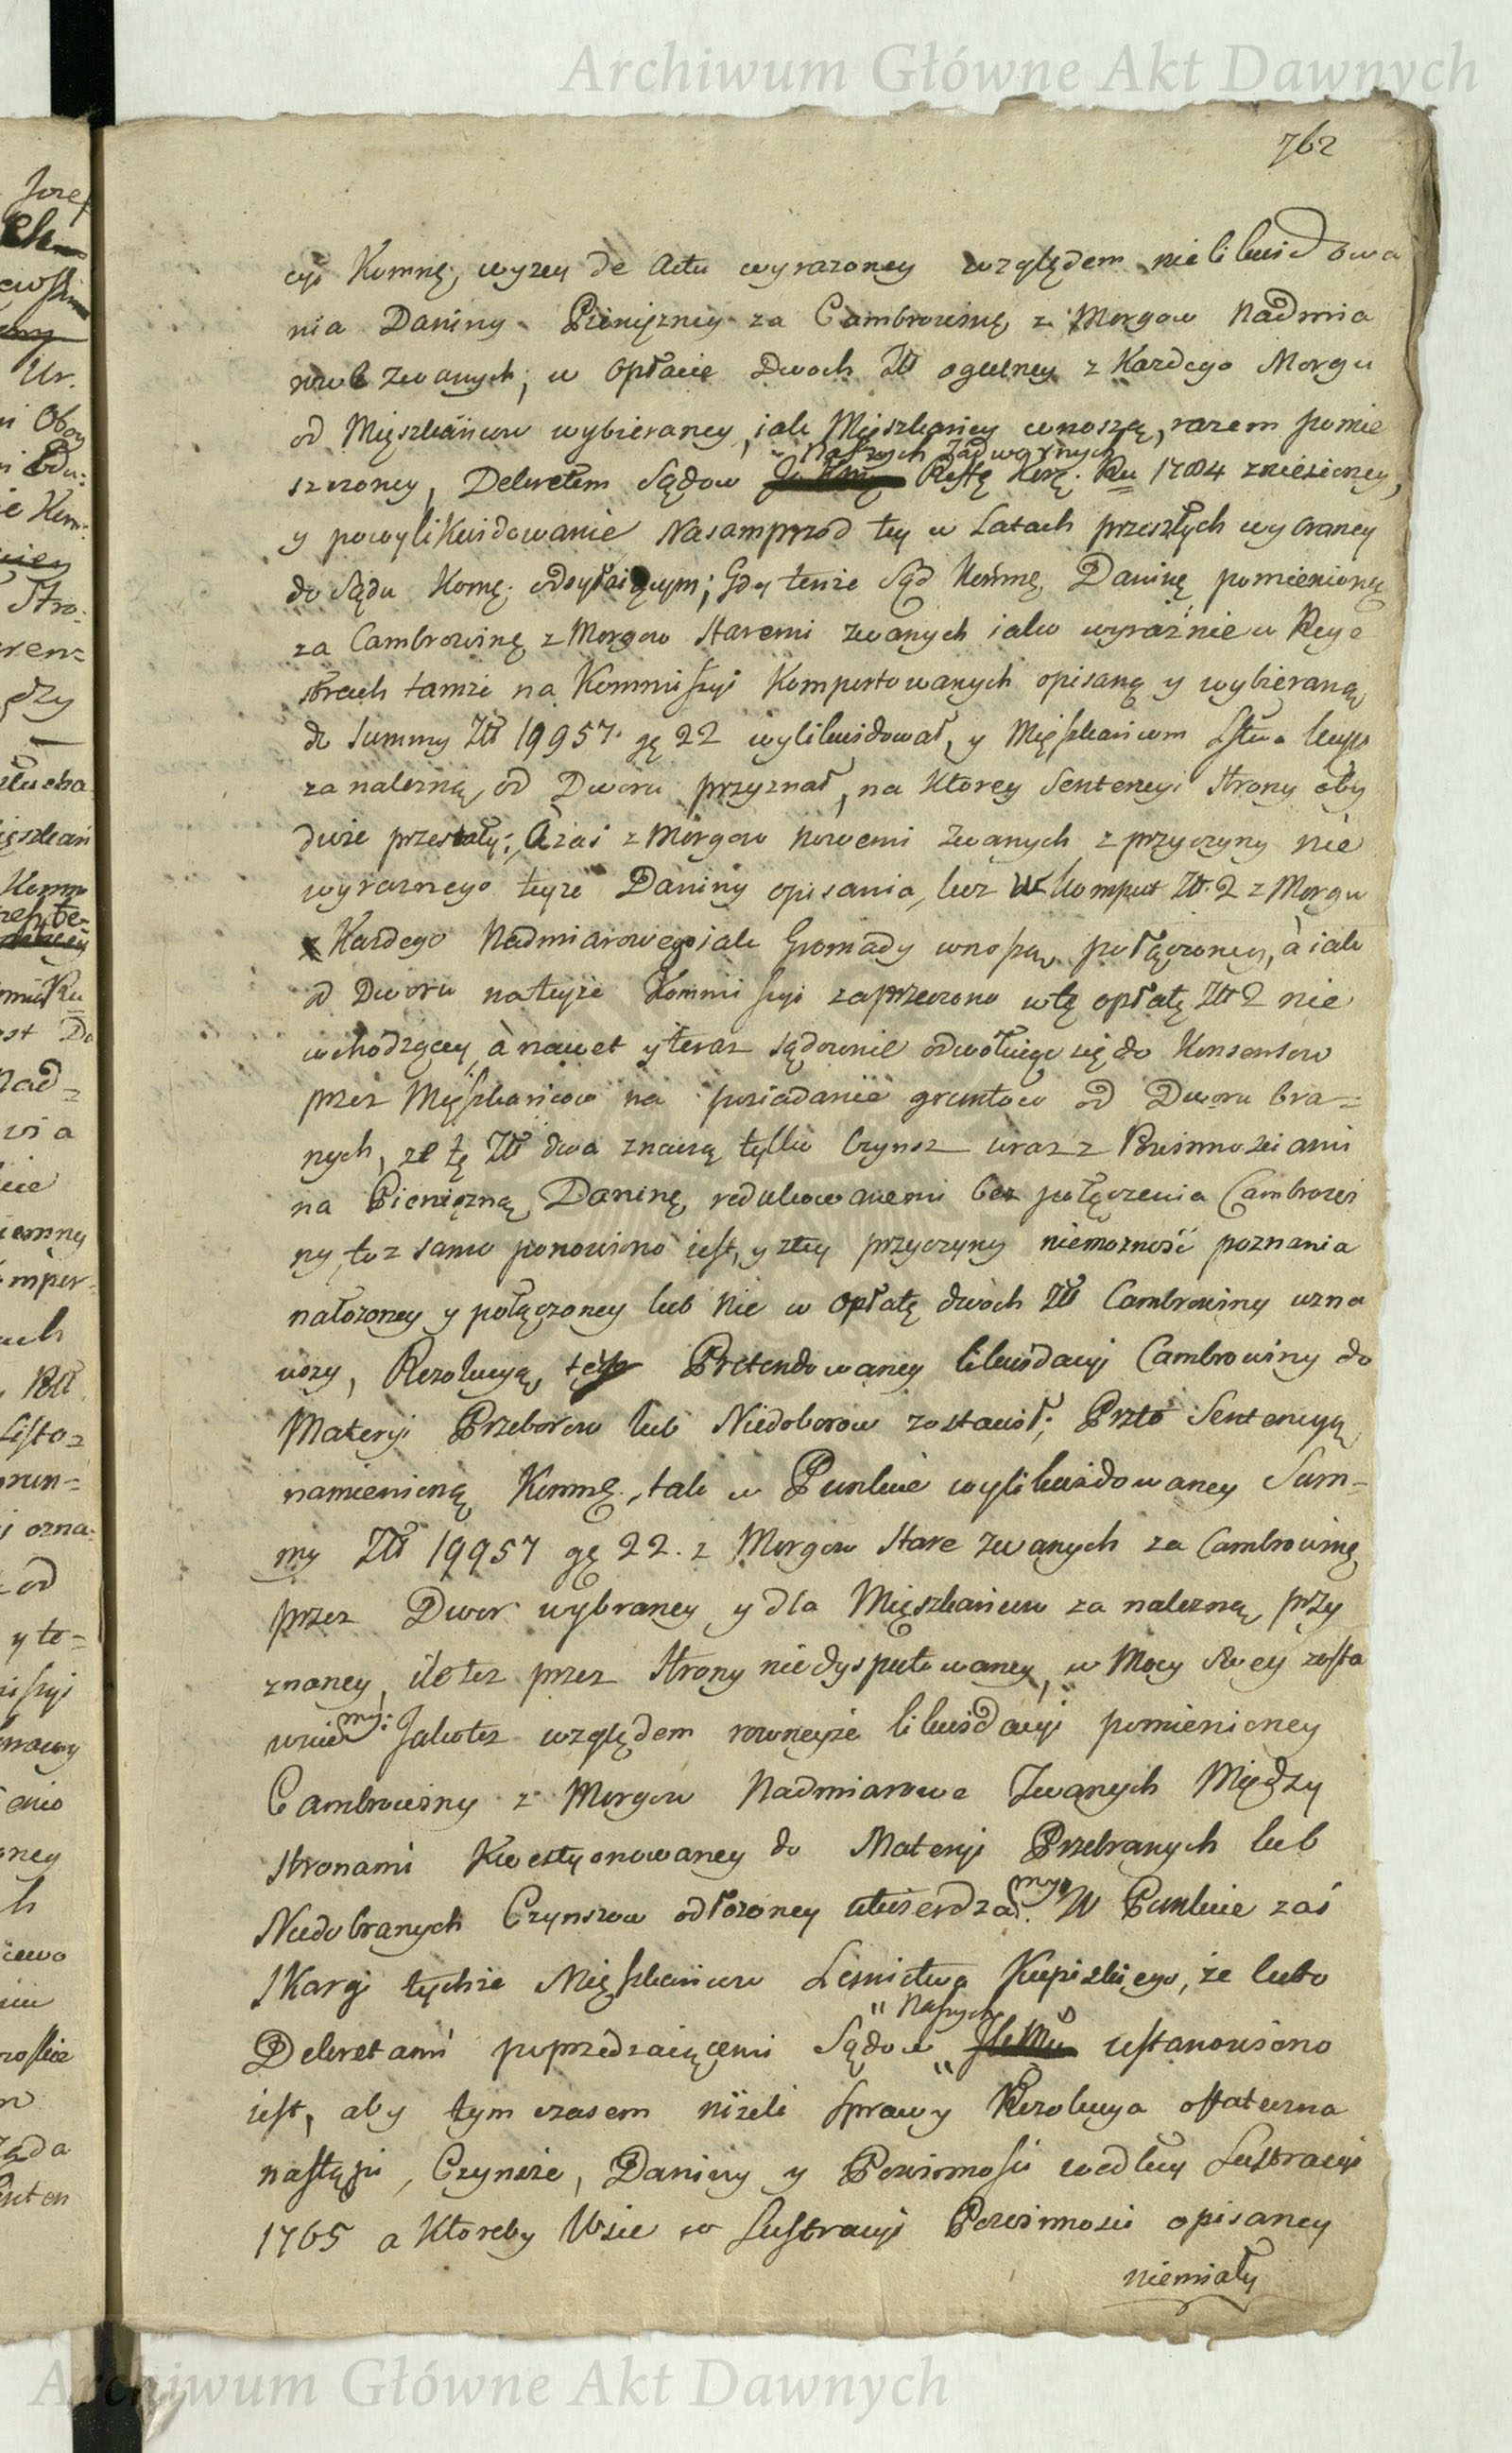 Archiwum Główne Akt Dawnych
762
cyi Kommę. wyżey de Actu wyrażoney względem nielikwidowa
nia Daniny Pieniężney za Cambrowinę z Morgow Nadmia
zwanych, w Opłacie Dwoch Złł ogulney z Każdego Morgu
od Mięszkańcow wybieraney, iak Mięszkańcy wnoszą, razem pomie
Naszych Zadwornych
szczoney, Dekretem Sądow Resttę Korę. Ru 1784 zniesioney,
y powylikwidowanie Nasamprzod tey w Latach przeszłych wybraney
do Sądu Komę. odsyłaiącym; Gdy tenże Sąd Kommę Daninę pomienioną
za Cambrowinę z Morgow Staremi zwanych iako wyraźnie w Reye
strach tamże na Kommissyi Komportowanych opisaną y wybieraną
do Summy Złł 19957. gę 22 wylikwidował, y Mięszkańcom Lstwa Kups
za należną od Dworu przyznał, na Ktorey Sentencyi Strony oby
dwie przestały; A zaś z Morgow Nowemi zwanych z przyczyny nie
wyraznego teyże Daniny opisania, lecz w komput Zł. 2 z Morgu
Każdego Nadmiarowego iak Gromady wnoszą połączoney, à iak
od Dworu na teyże Kommissyi zaprzeczono w tę opłatę Złł 2 nie
wchodzącey, à nawet y teraz sądownie odwołuiąc się do Konsensow
przez Mięszkańcow na posiadanie gruntow od Dworu bra=
nych, że tę Złł dwa znaczą tylko Czynsz wraz z Powinnościami
na Pieniężną Daninę redukowanemi bez połączenia Cambrowi
ny, toż samo ponowiono iest, y ztey przyczyny niemożność poznania
nałożoney y połączoney lub Nie w Opłatę dwoch Złł Cambrowiny uzna
wszy, Rezolucyą Pretendowaney likwidacyi Cambrowiny do
Materyi Przeborow lub Niedoborow zostawił; Przto Sentencyą
namienioną Kommę., tak w Punkcie wylikwidowaney Sum=
my Złł 19957 gę 22. z Morgow Stare zwanych za Cambrowinę
przez Dwor wybraney y dla Mięszkańcow za należną przy
znaney, ile też przez Strony niedysputowaney, w Mocy swey zosta
wuiemy: Jako też względem rowneyże likwidacyi pomienioney
Cambrowiny z Morgow Nadmiarowe Zwanych Między
Stronami Kwestyonowaney do Materyi Przebranych lub
Niedobranych Czynszow odłożoney utwierdzamy. W Punkcie zaś
Skargi tychże Mięszkańcow Lesnictwa Kupiskiego, że lubo
" Naszych
Dekretami poprzedzaiącemi Sądow " ustanowiono
iest, aby tym czasem niżeli Sprawy Rezolucya ostateczna
nastąpi, Czynsze, Daniny y Powinności według Lustracyi
1765 a Ktoreby Wsie w Lustracyi Powinności opisaney
niemiały
Archiwum Główne Akt Dawnych